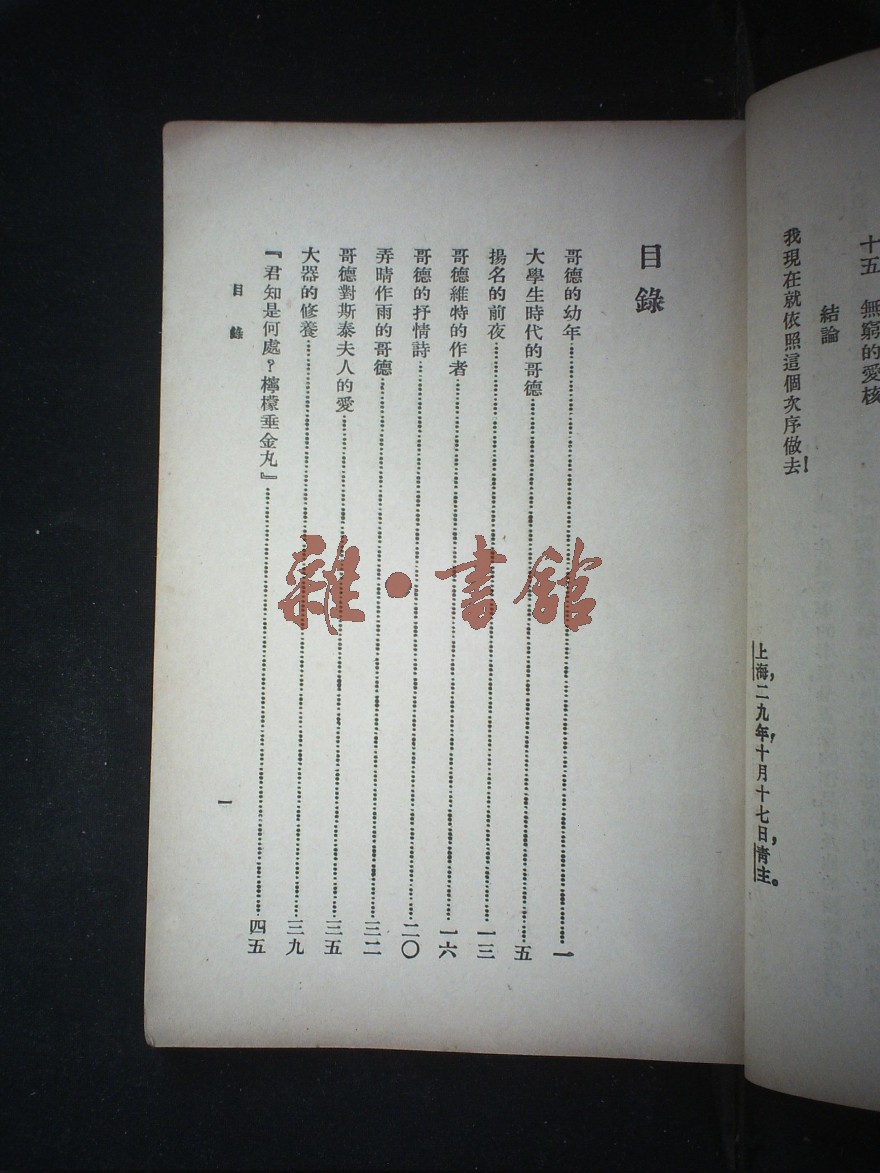 十五 無窮的愛核
結論
我現在就依照這個次序做去！
上海，二九年，十月十七日，青主。
目錄
哥德的幼年……一
大學生時代的哥德……五
揚名的前夜……一三
哥德維特的作者……一六
哥德的抒情詩……二〇
弄晴作雨的哥德……三二
哥德對斯泰夫人的愛……三五
大器的修養……三九
『君知是何處？檸檬垂金丸』……四五
目錄
一
雜·書館